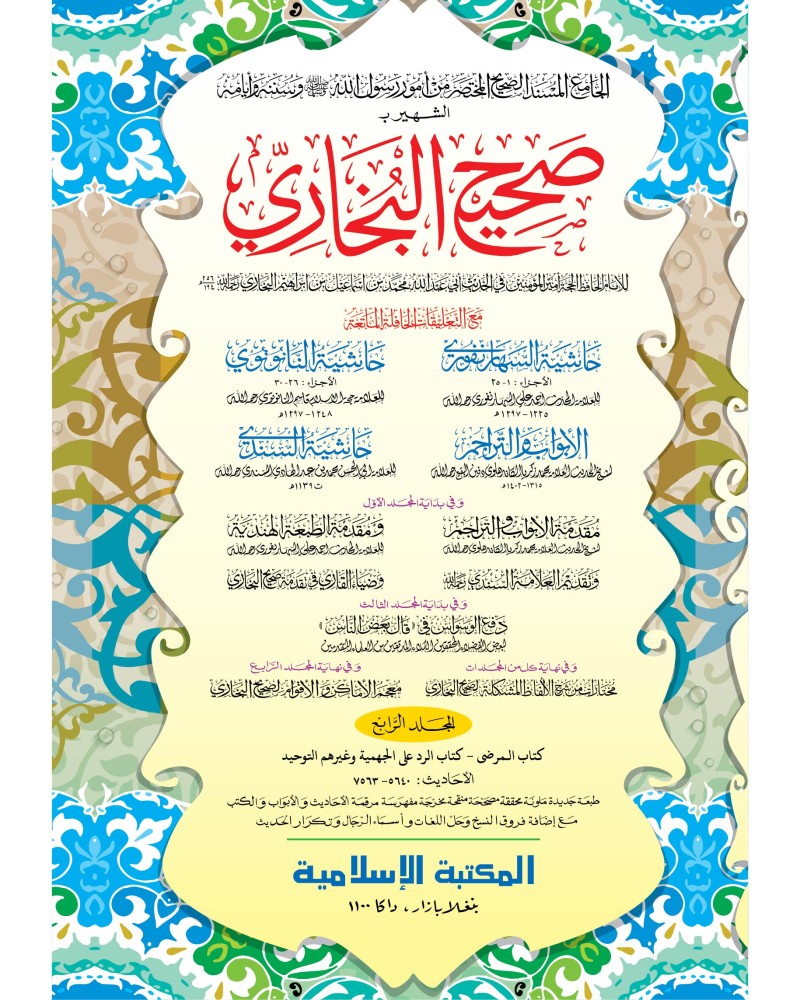 الجامع المسند الصحيح المختصر من أمور رسول الله ﷺ وسننه وأيامه
الشهير ب
صحيح البخاري
للإمام الحافظ الحجة أمير المؤمنين في الحديث أبي عبد الله محمد بن إسماعيل بن إبراهيم البخاري رحمه الله
مع التعليقات الحافلة الماتعة
حاشية السهارنفوري
الأجزاء : ١-٢٥
للعلامة المحدث أحمد علي السهارنفوري رحمه الله
١٢٢٥-١٢٩٧ھ
حاشية النانوتوي
الأجزاء : ٢٦-٣٠
للعلامة حجة الإسلام قاسم النانوتوي رحمه الله
١٢٤٨-١٢٩٧ھ
الأبواب والتراجم
لشيخ الحديث العلامة محمد زكريا الكاندهلوي دفين البقيع رحمه الله
١٣١٥-١٤٠٢ھ
حاشية السندي
للعلامة أبي الحسن محمد بن عبد الهادي السندي رحمه الله
ت ١١٣٩ھ
وفي بداية المجلد الأول
مقدمة الأبواب والتراجم
لشيخ الحديث العلامة محمد زكريا الكاندهلوي رحمه الله
ومقدمة الطبعة الهندية
للعلامة المحدث أحمد علي السهارنفوري رحمه الله
وتقديم العلامة السندي رحمه الله
وضياء القاري في تقدمة صحيح البخاري
وفي بداية المجلد الثالث
دفع الوسواس في «قال بعض الناس»
لبعض الفضلاء المحققين الأذكياء المدققين من العلماء المتقدمين
وفي نهاية كل من المجلدات
مختارات من شرح الألفاظ المشكلة لصحيح البخاري
وفي نهاية المجلد الرابع
معجم الأماكن والأقوام لصحيح البخاري
المجلد الرابع
كتاب المرضى - كتاب الرد على الجهمية وغيرهم التوحيد
الأحاديث : ٥٦٤٠-٧٥٦٣
طبعة جديدة ملونة محققة مصححة منقحة مخرجة مفهرسة مرقمة الأحاديث والأبواب والكتب
مع إضافة فروق النسخ وحل اللغات وأسماء الرجال وتكرار الحديث
المكتبة الإسلامية
بنغلابازار، داكا ١١٠٠